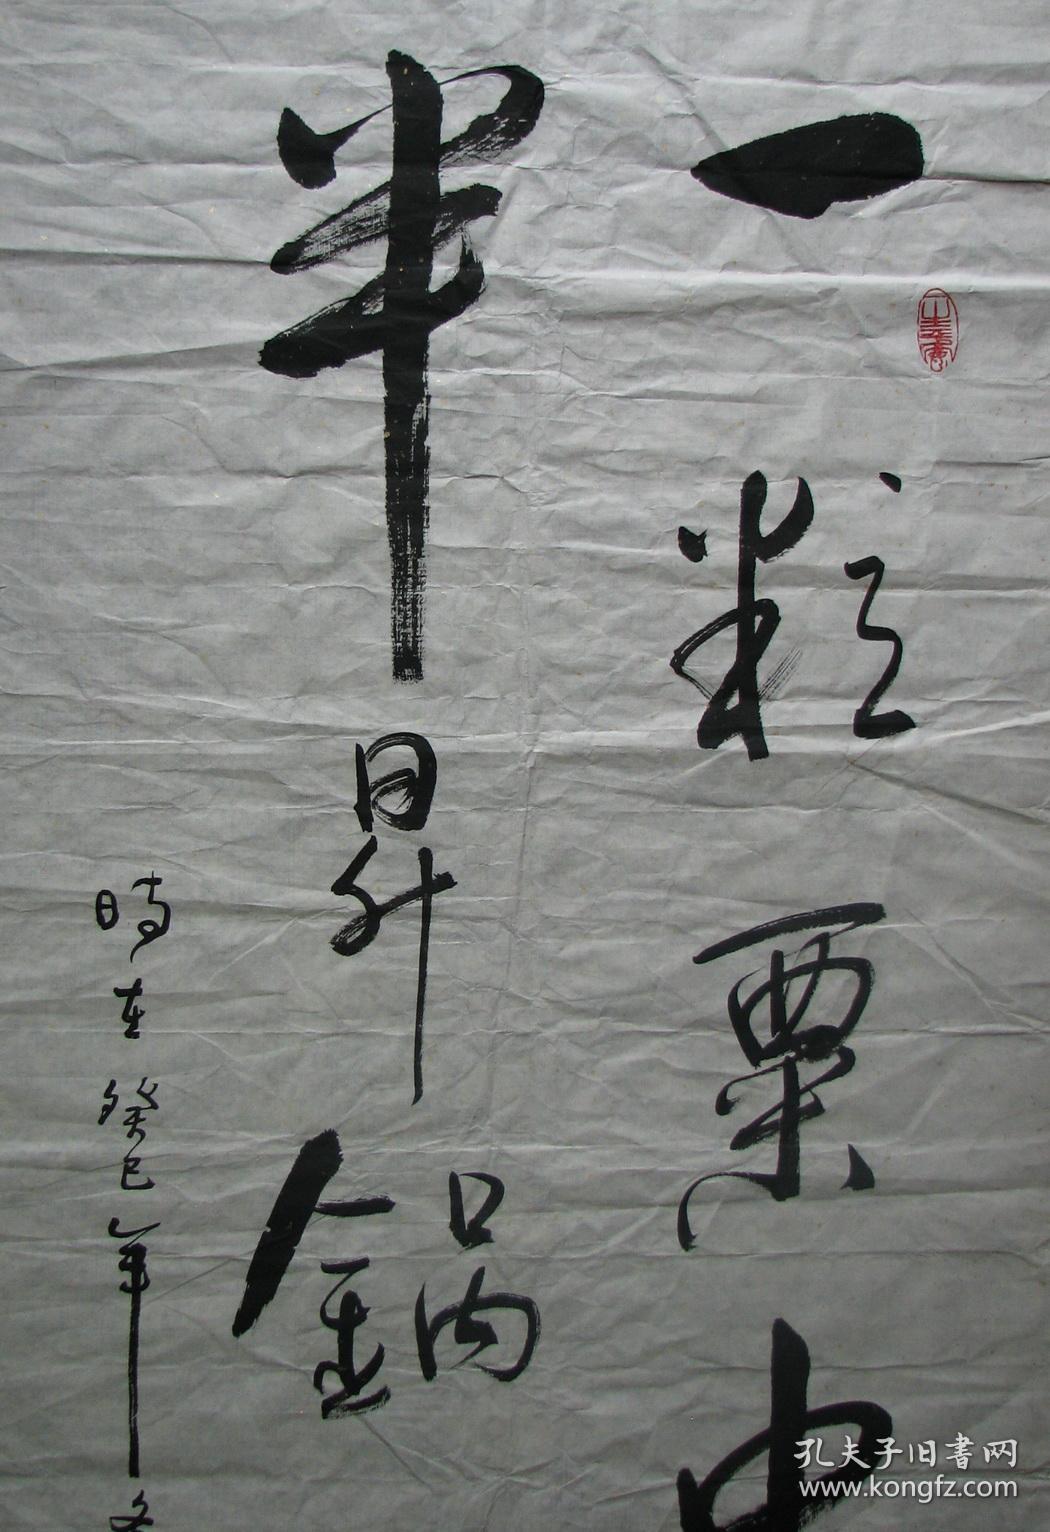 一粒粟中
半昇鍋
時在癸巳年冬
孔夫子旧書网
www.kongfz.com